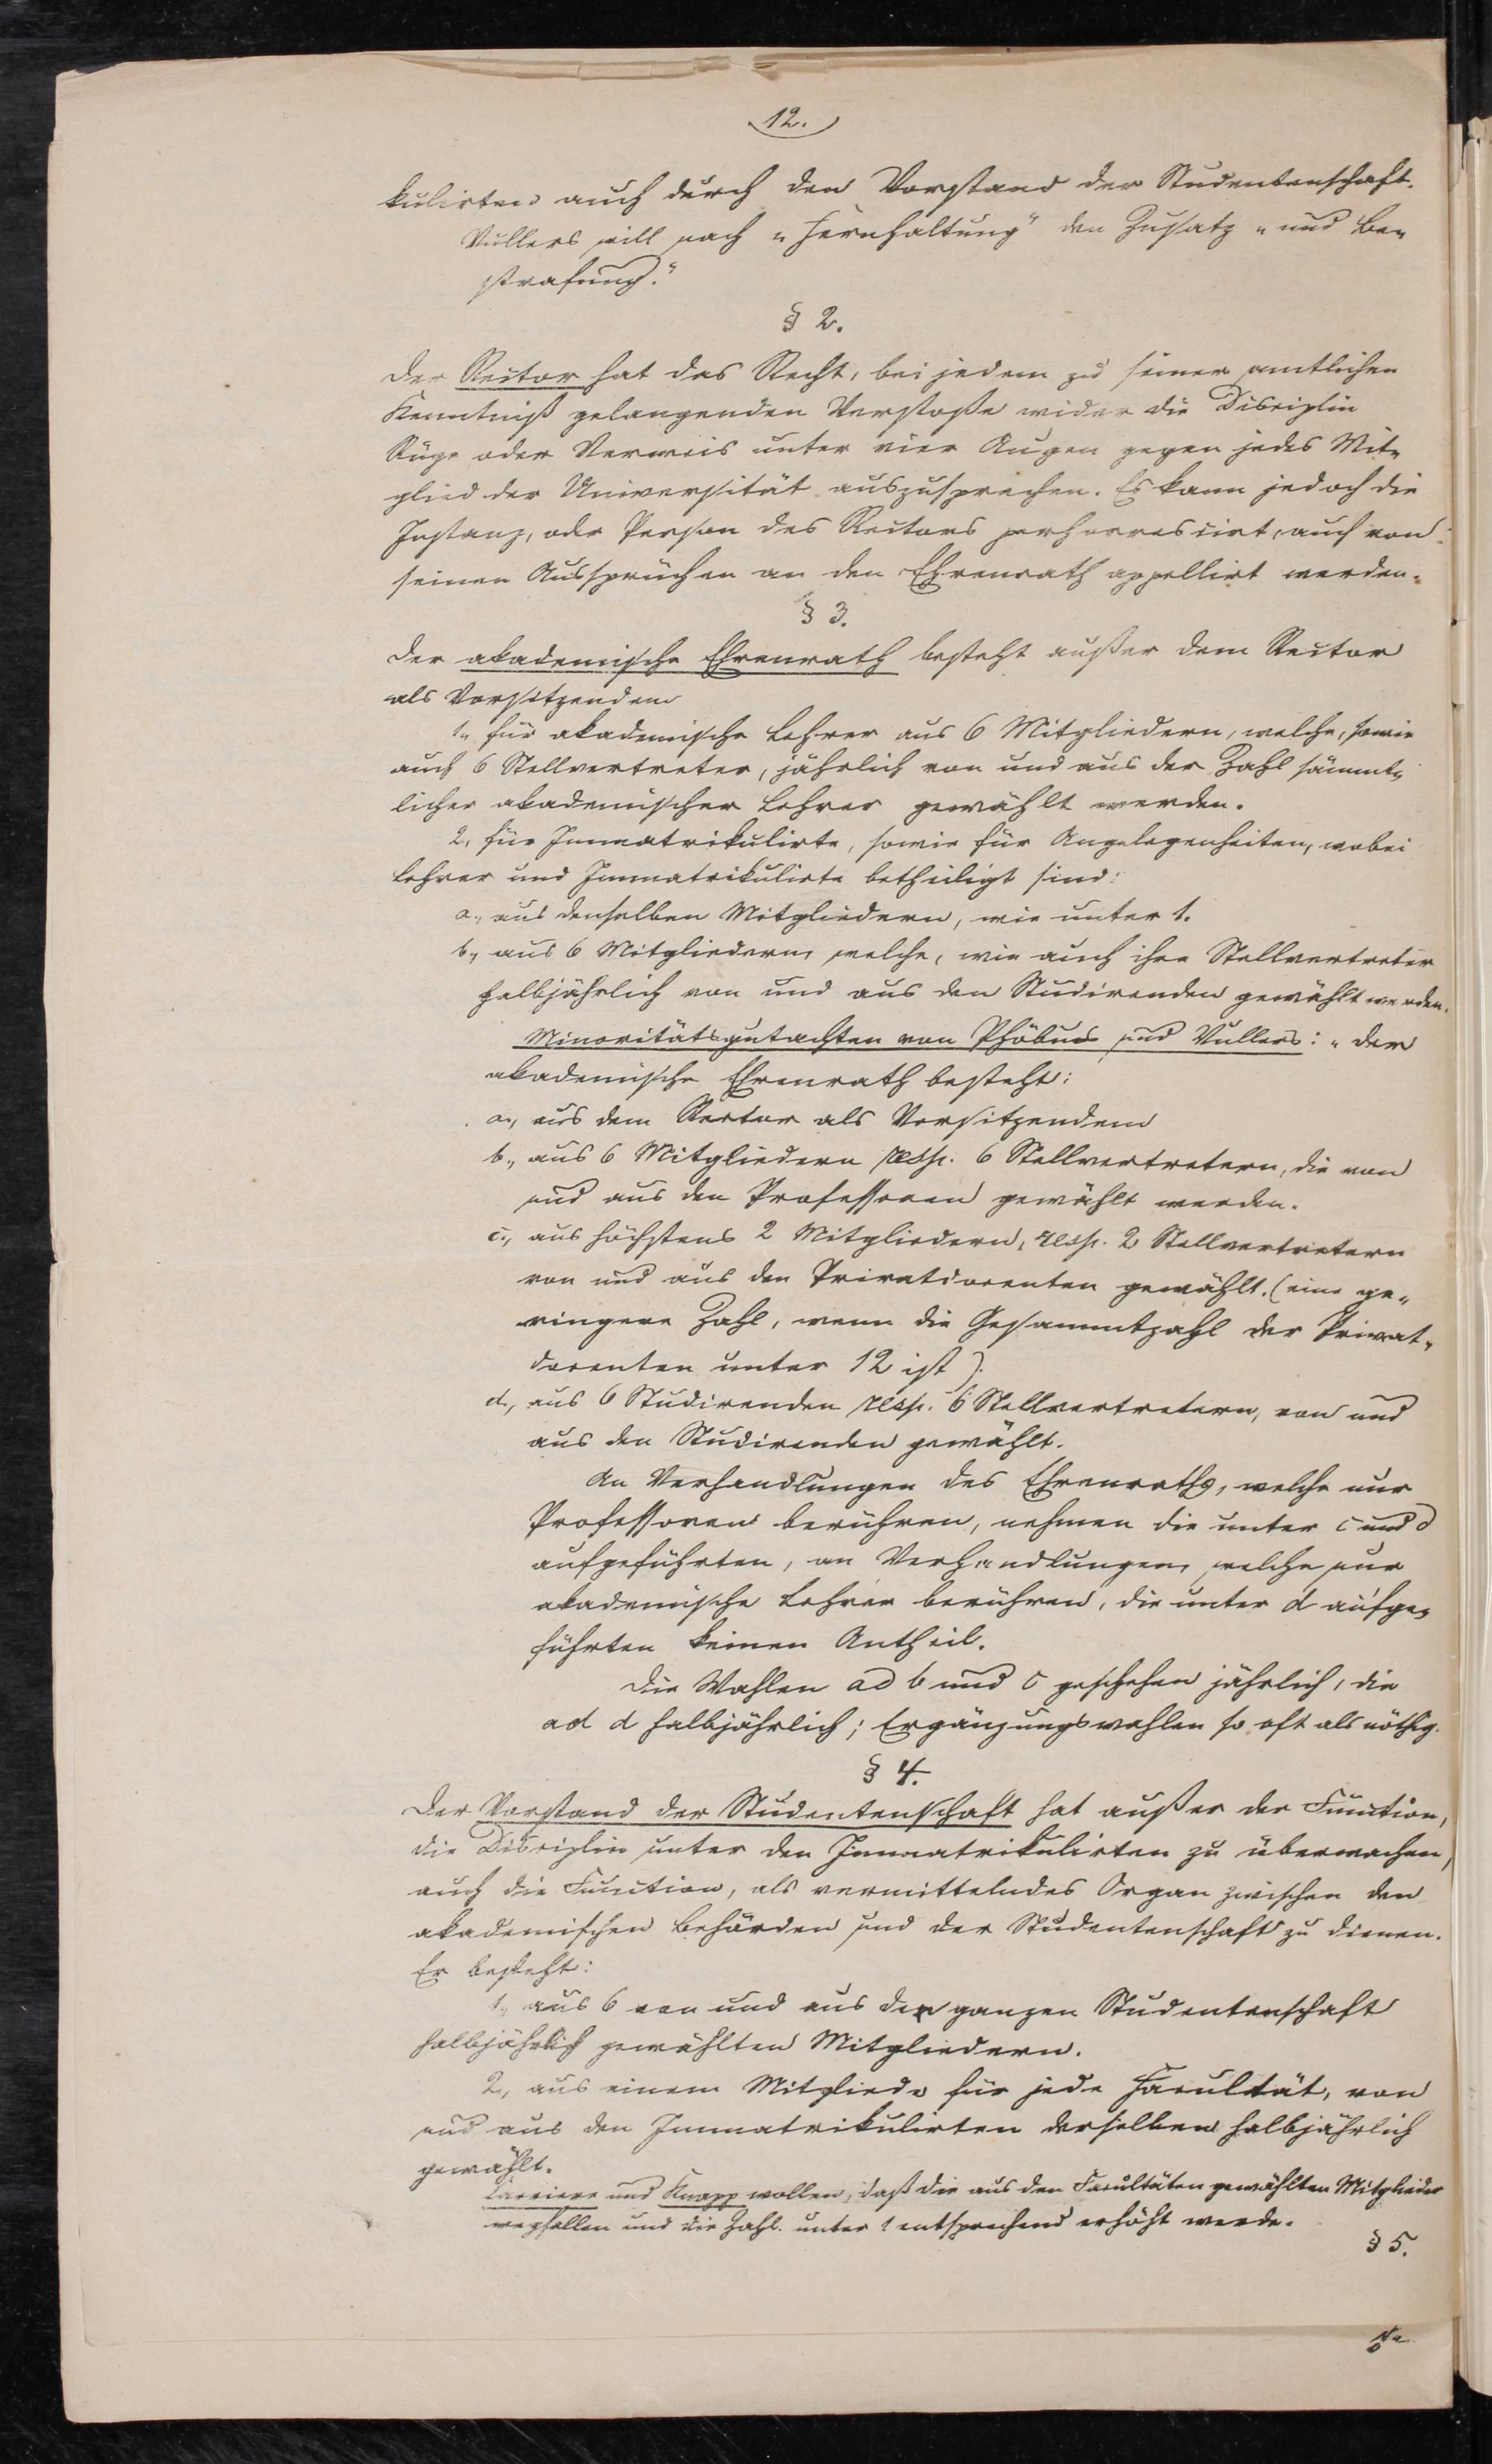 12.
kulirten auch durch den Vorstand der Studentenschaft.
Vullers will nach „Fernhaltung" den Zusatz „und Be„
strafung."
§ 2.
Der Rector hat das Recht, bei jedem zu seiner amtlichen
Kenntniß gelangenden Verstoße wider die Disciplin
Rüge oder Verweis unter vier Augen gegen jedes Mit„
glied der Universität auszusprechen. Es kann jedoch die
Instanz, oder Person des Rectors perhorrescirt, auch von
seinen Aussprüchen an den Ehrenrath appellirt werden.
§ 3.
Der akademische Ehrenrath besteht außer dem Rector
als Vorsitzendem
1., für akademische Lehrer aus 6 Mitgliedern, welche, sowie
auch 6 Stellvertreter, jährlich von und aus der Zahl sämmt„
licher akademischer Lehrer gewählt werden.
2, für Immatrikulirte, sowie für Angelegenheiten, wobei
Lehrer und Immatrikulirte betheiligt sind:
a., aus denselben Mitgliedern, wie unter 1.
b., aus 6 Mitgliedern, welche, wie auch ihre Stellvertreter
halbjährlich von und aus den Studirenden gewählt werden.
Minoritätsgutachten von Phöbus und Vullers: „der
akademische Ehrenrath besteht:
a., aus dem Rector als Vorsitzendem
b., aus 6 Mitgliedern resp. 6 Stellvertretern, die von
und aus den Professoren gewählt werden.
c., aus höchstens 2 Mitgliedern, resp. 2 Stellvertretern
von und aus den Privatdocenten gewählt. (eine ge„
ringere Zahl, wenn die Gesammtzahl der Privat„
docenten unter 12 ist).
d., aus 6 Studirenden resp. 6 Stellvertretern, von und
aus den Studirenden gewählt.
An Verhandlungen des Ehrenraths, welche nur
Professoren berühren, nehmen die unter c und d
aufgeführten, an Verhandlungen, welche nur
akademische Lehrer berühren, die unter d aufge„
führten keinen Antheil.
Die Wahlen ad b und c geschehen jährlich, die
ad d halbjährlich; Ergänzungswahlen so oft als nöthig.
§ 4.
Der Vorstand der Studentenschaft hat außer der Function,
die Disciplin unter den Immatrikulirten zu überwachen,
auch die Function, als vermittelndes Organ zwischen den
akademischen Behörden und der Studentenschaft zu dienen.
Er besteht:
1., aus 6 von und aus der ganzen Studentenschaft
halbjährlich gewählten Mitgliedern.
2., aus einem Mitgliede für jede Facultät, von
und aus den Immatrikulirten derselben halbjährlich
gewählt.
Carriere und Knapp wollen, daß die aus den Facultäten gewählten Mitglieder
wegfallen und die Zahl unter 1 entsprechend erhöht werde.
§ 5.